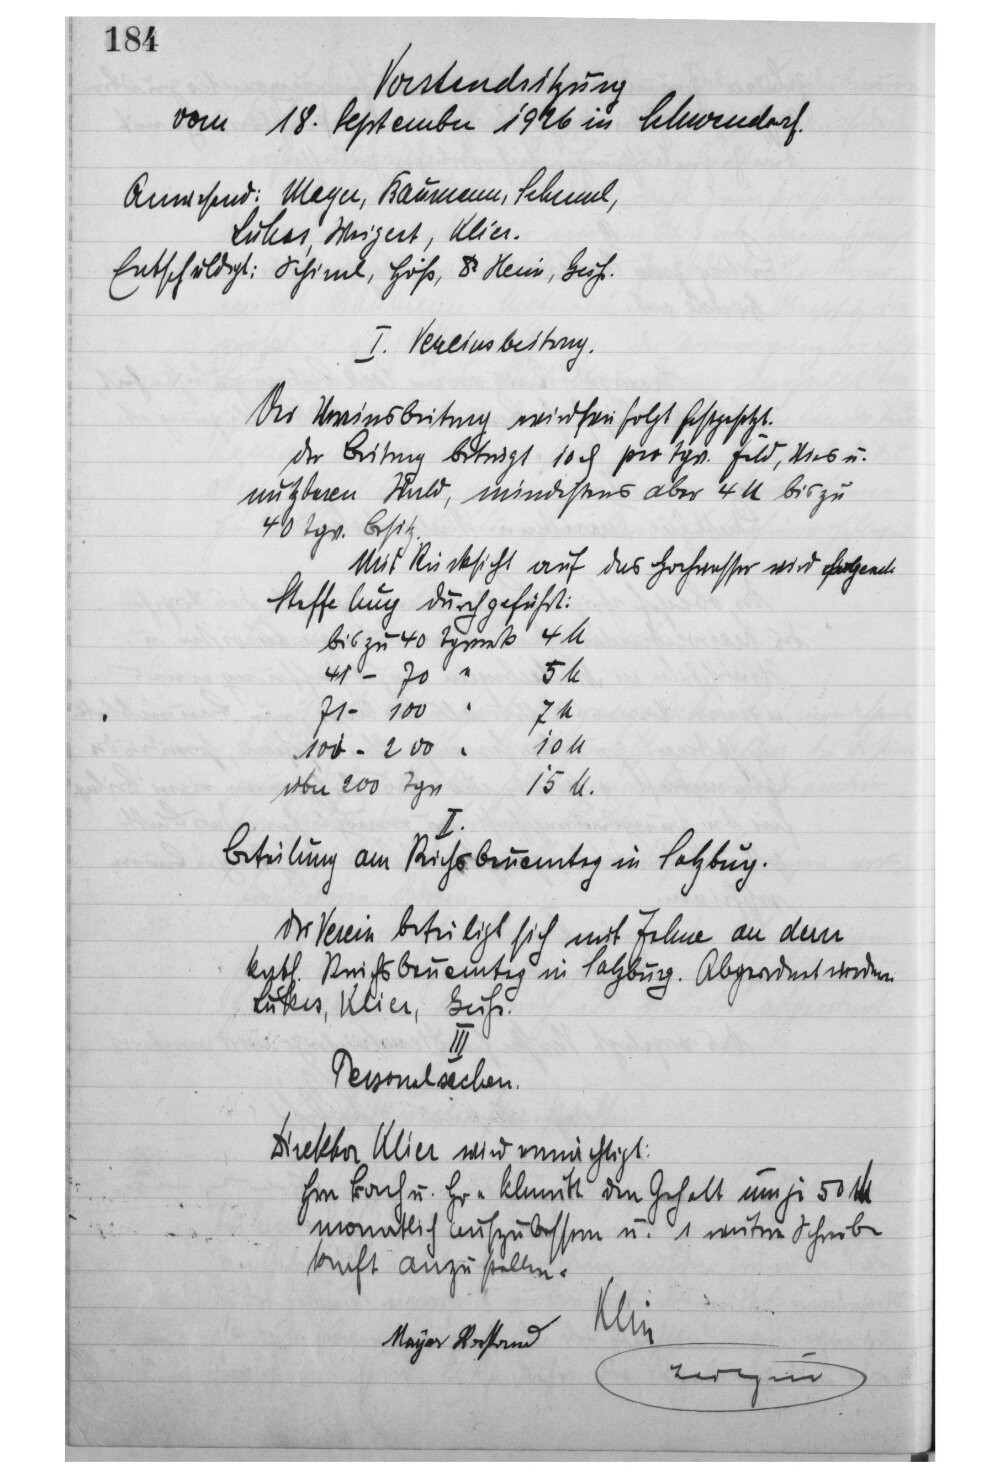 184
Vorstandsitzung
vom 18. September 1926 in Schwandorf.
Anwesend: Mayer, Baumann, Schmal,
Lukas, Weigert, Klier.
Entschuldigt: Schiml, Höß, Hein,
I. Vereinsbeitrag.
Der Vereinsbeitrag wird wie folgt festgesetzt.
der Beitrag beträgt 10 ₰ pro Tgw. Feld, Wies u.
nutzbaren Wald, mindestens aber 4 M bis zu
40 Tgw. Besitz.
Mit Rücksicht auf das Hochwasser wird folgende
Staffelung durchgeführt:
bis zu 40 Tgwerk 4 M
41 - 70 " 5 M
71 - 100 " 7 M
101 - 200 " 10 M
über 200 Tgw 15 M.
II.
Beteilung am Reichsbauerntag in Salzburg.
Der Verein beteiligt sich mit Fahne an dem
kath. Reichsbauerntag in Salzburg. Abgeordnet werden
Lukas, Klier,
III
Personalsachen.
Direktor Klier wird ermächtigt:
Hrn u. Hr. Schmitt den Gehalt um je 50 M
monatlich aufzubessern u. 1 weitere Schreib
kraft anzustellen.
Mayer Vorstand
Klier